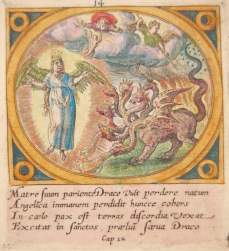 14
Matre suum pariente Draco vult perdere natum
Angelica immanem perdidit huncce cohors
In cælo pax est terras discordia vexat
Excitat in sanctos, prælia sæva Draco
Cap 12